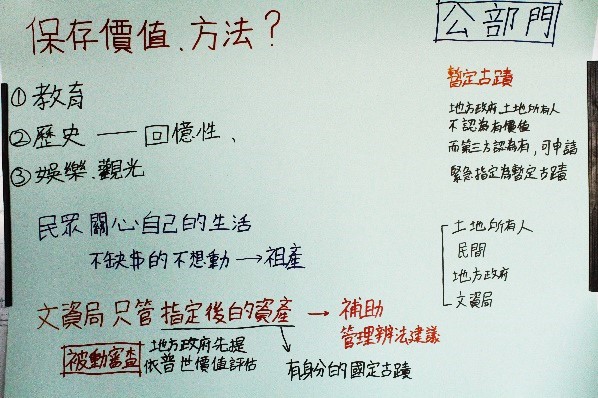 保存價值、方法?
公部門
①教育
②歷史——回憶性、
③娛樂、觀光
暫定古蹟
地方政府、土地所有人
不認為有價值
而第三方認為有,可申請
緊急指定為暫定古蹟
民眾關心自己的生活
不缺錢的不想動→祖產
土地所有人
民間
地方政府
文資局
文資局只管指定後的資產→補助
管理辦法建議
被動審查 地方政府先提
依普世價值評估
有身分的國定古蹟